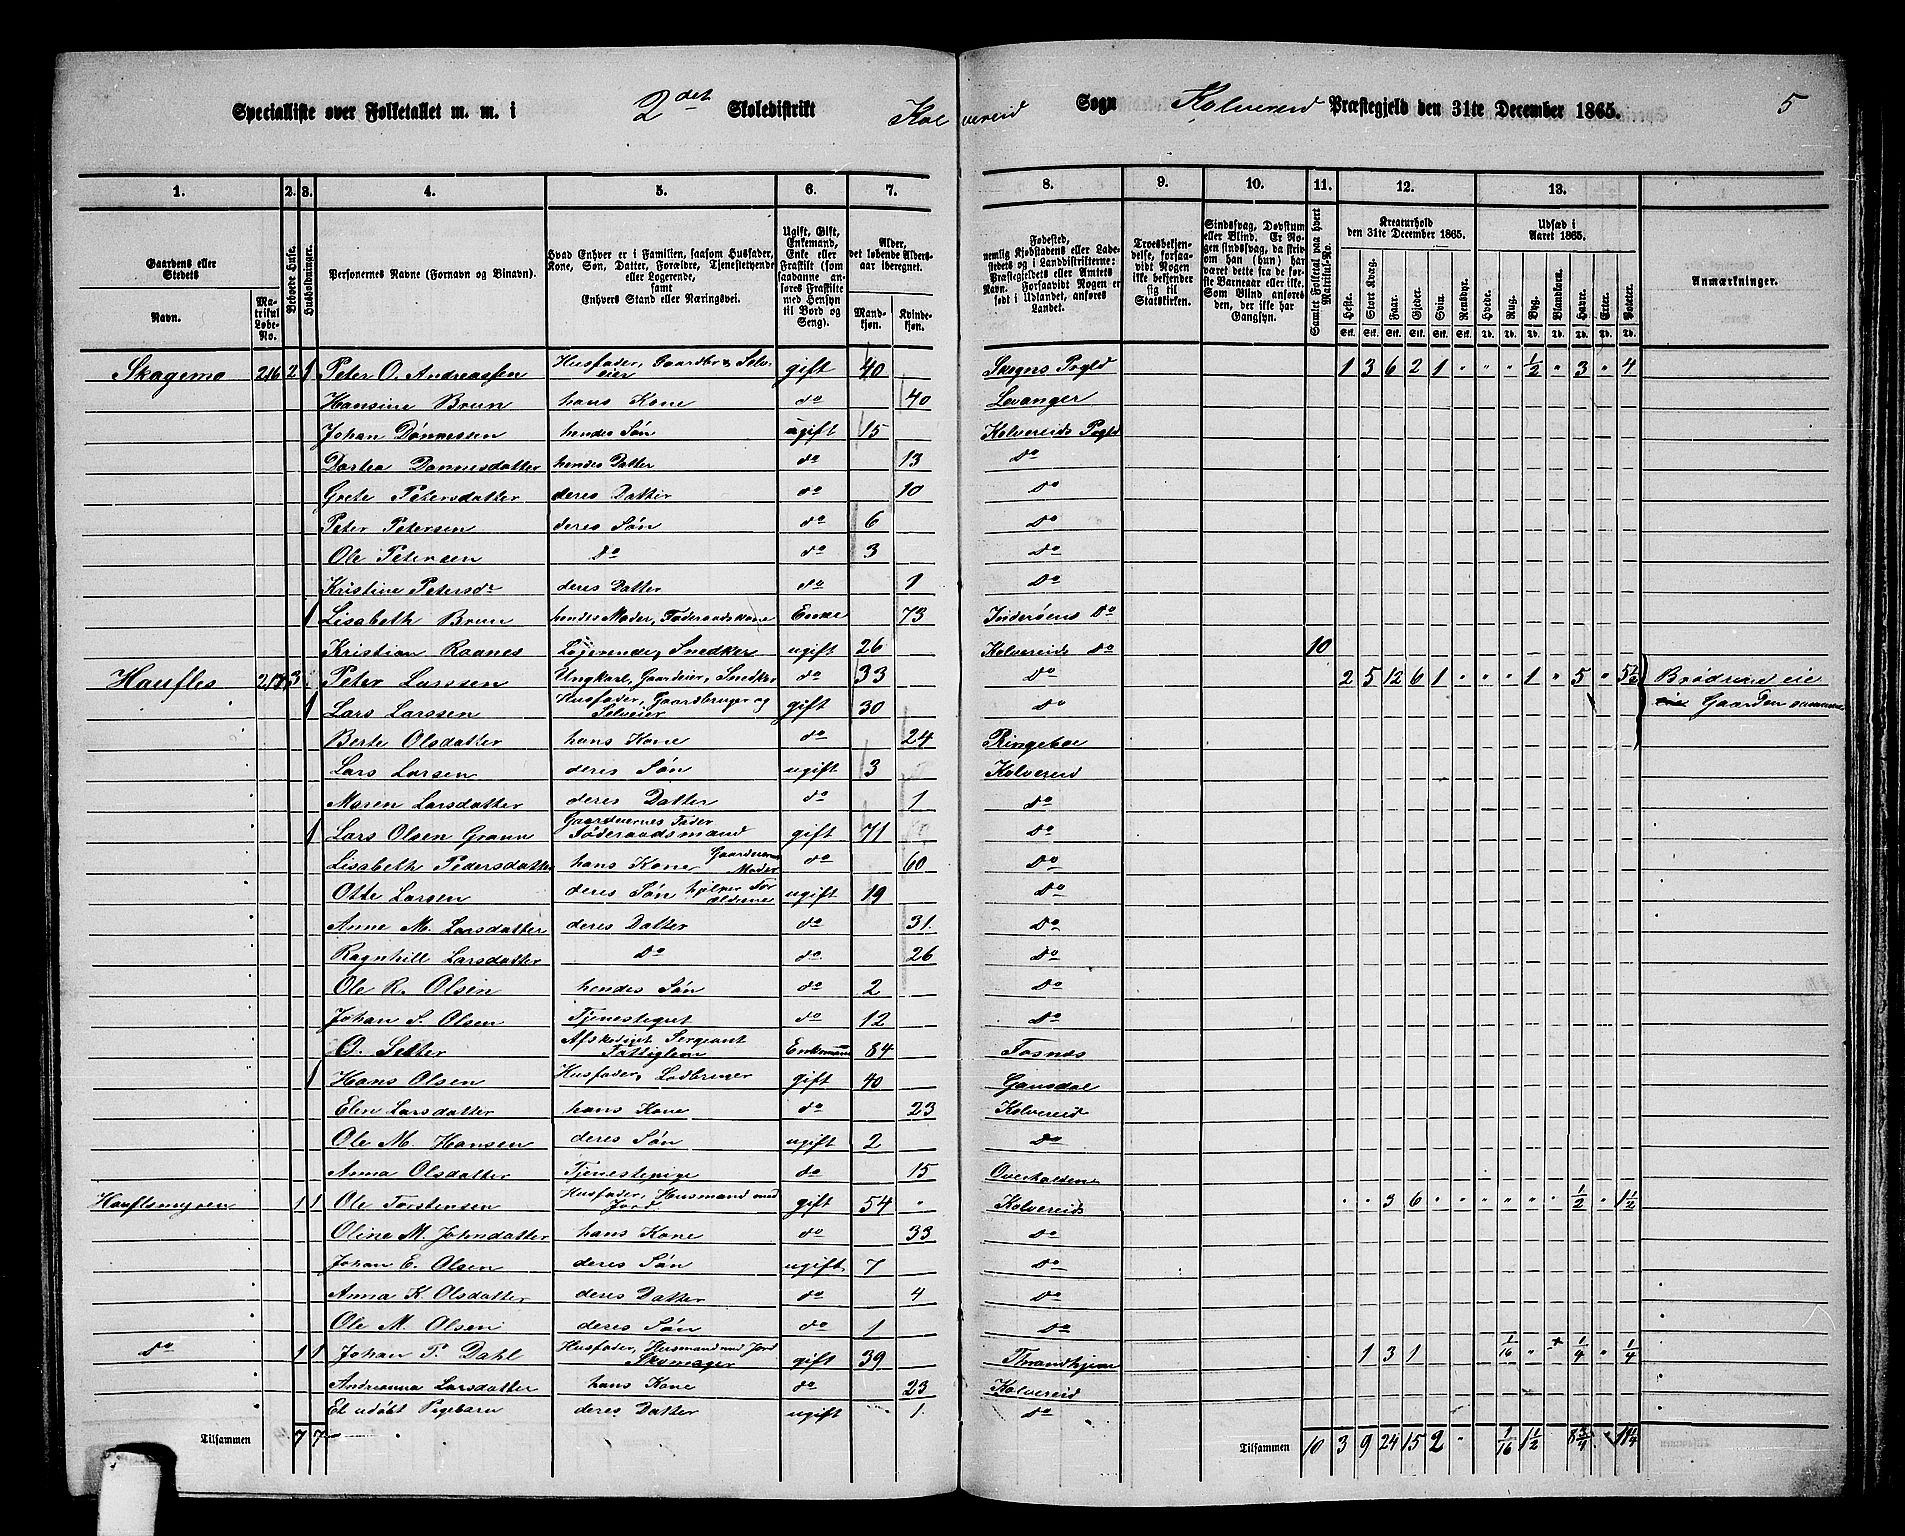 Specialliste over Folketallet m. m. i 2det Skoledistrikt Kolvereid Sogn Kolvereid Præstegjeld den 31te December 1865. 5
1. 2. 3. 4. 5. 6. 7. 8. 9. 10. 11. 12. 13.
Gaardens eller Stedets Navn. Matrikul Løbe-No. Beboede Huse. Husholdninger. Personernes Navne (Fornavn og Binavn). Hvad Enhver er i Familien, saasom Husfader, Kone, Søn, Datter, Forældre, Tjenestetyende eller Logerende, samt Enhvers Stand eller Næringsvei. Ugift, Gift, Enkemand, Enke eller Fraskilt (som saadanne anføres Fraskilte med Hensyn til Bord og Seng). Alder, det løbende Aldersaar iberegnet. Mandkjøn. Kvindekjøn.
Fødested, nemlig Kjøbstadens eller Ladestedets og i Landdistrikterne: Præstegjeldets eller Amtets Navn. Forsaavidt Nogen er født i Udlandet, anføres Landet. Troesbekjendelse, forsaavidt Nogen ikke bekjender sig til Statskirken. Sindssvag, Døvstum eller Blind. Er Nogen sindssvag, da skrives om han (hun) har været dette fra de første Barneaar eller ikke. Som Blind anføres den, der ikke har Gangsyn. Samlet Folketal paa hvert Matrikul-No. Kreaturhold den 31te December 1865. Heste. Stort Kvæg. Faar. Gjeder. Svin. Rensdyr. Udsæd i Aaret 1865. Hvede. Rug. Byg. Blandkorn. Havre. Erter. Poteter. Anmærkninger.
Skagemo 216 2 1 Peter O. Andreassen Husfader, Gaardbr & Selveier gift 40 Skogns Pgld 1 3 6 2 1 " " " 1/2 " 3 " 4
Hansine Brun hans Kone do 40 Levanger
Johan Dønnessen hendes Søn ugift 15 Kolvereids Pgld
Dortea Dønnesdatter hendes Datter do 13 Do
Grete Petersdatter deres Datter do 10 Do
Peter Petersen deres Søn do 6 Do
Ole Petersen Do do 3 Do
Kristine Petersdr deres Datter do 1 Do
1 Lisabeth Brun hendes Moder, Føderaadskone Enke 73 Inderøens Do
Kristian Roanes Logerende, Snedker ugift 26 Kolvereids Do 10
Haufles 3 Peter Larssen Ungkarl, Gaardeier, Snedker do 33 Do 2 5 12 6 1 " " " 1 " 5 " Brødrene eie
1 Lars Larssen Husfader, Gaardbruger og Selveier gift 30 Do Gaarden sammen
Berte Olsdatter hans Kone do 24 Ringeboe
Lars Larsen deres Søn ugift 3 Kolvereid
Maren Larsdatter deres Datter do 1 Do
1 Lars Olsen Føderaadsmand gift 71 Do
Lisabeth Pedersdatter hans Kone Moder do 60 Do
Otte Larsen deres Søn hjelper Forældrene ugift 19 Do
Anne M. Larsdatter deres Datter do 31 Do
Ragnhill Larsdatter Do do 26 Do
Ole R. Olsen hendes Søn do 2 Do
Johan S. Olsen Tjenestegut do 12 Do
O. Setter Afskediget Sergeant Fattiglem Enkemand 84 Fosnæs
1 Hans Olsen Husfader, Lodbruger gift 40 Gausdal
Elen Larsdatter hans Kone do 23 Kolvereid
Ole M. Hansen deres Søn ugift 2 Do
Anna Olsdatter Tjenestepige do 15 Overhalden
Hauflesmyren 1 1 Ole Torstensen Husfader, Husmand med Jord gift 54 " Kolvereids " " 3 6 " " " " " " 1/2 " 1 1/2
Oline M. Johndatter hans Kone do 33 Do
Johan E. Olsen deres Søn ugift 7 Do
Anna K. Olsdatter deres Datter do 4 Do
Ole M. Olsen deres Søn do 1 Do
Do 1 1 Johan P. Dahl Husfader, Husmand med Jord Skomager gift 39 Throndhjem 1 3 1 1/16 " 1/4 " 1/4
Andreanna Larsdatter hans Kone do 23 Kolvereid
Et udøbt Pigebarn deres Datter ugift 1 Do
Tilsammen 7 7 Tilsammen 10 3 9 24 15 2 " 1/16 1 1/2 8 3/4 "